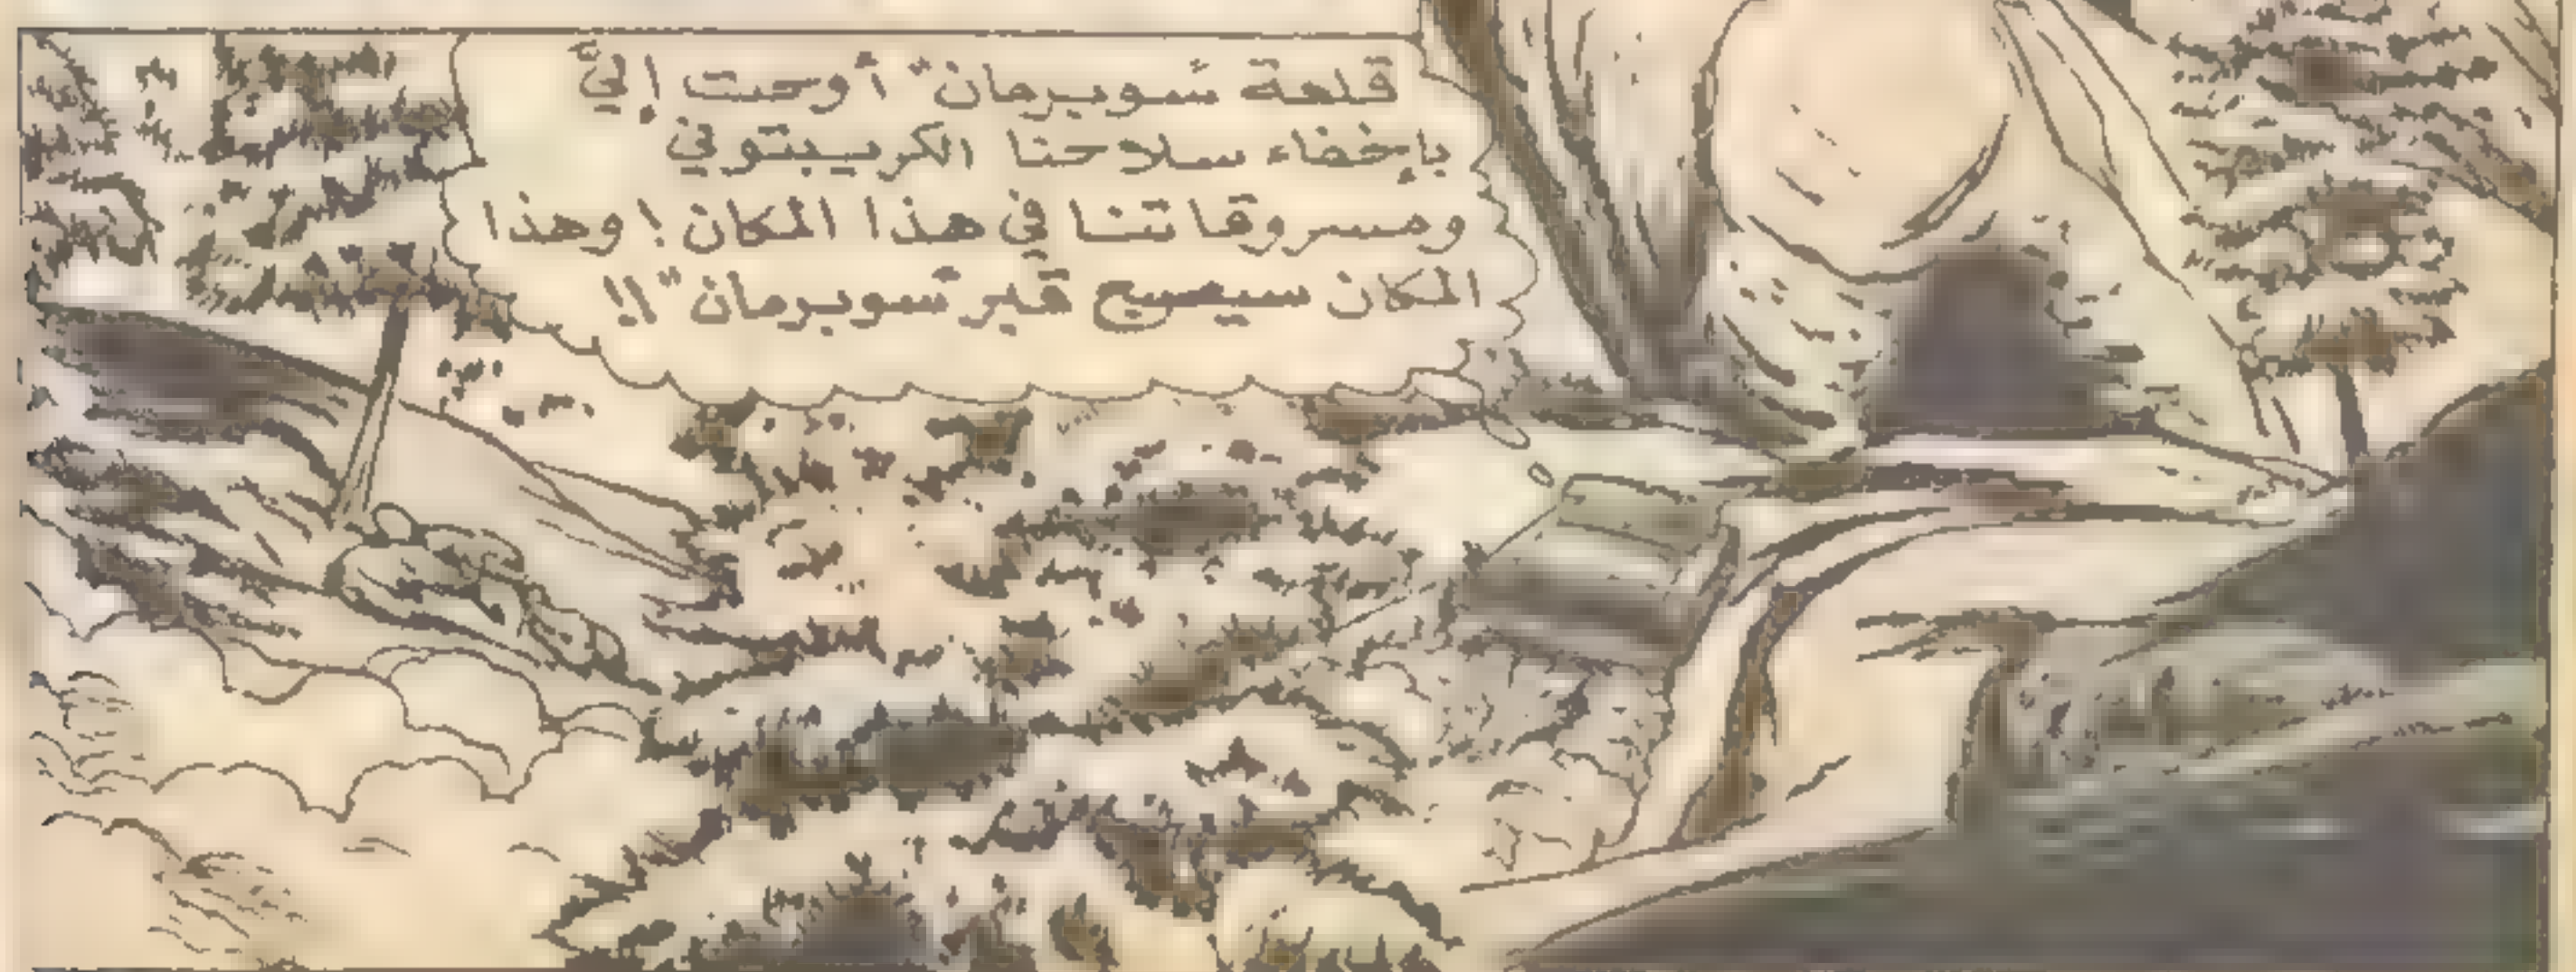 قلعة "سوبرمان" أوحت إليَّ
بإخفاء سلاحنا الكريبتوني
ومسروقاتنا في هذا المكان! وهذا
المكان سيصبح قبر "سوبرمان"!!